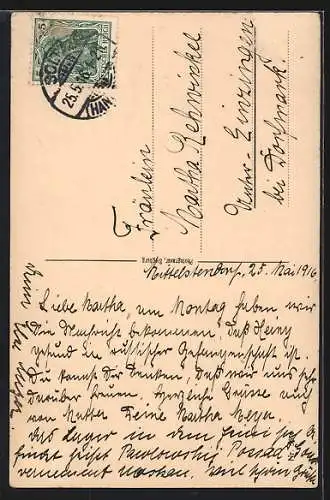 5
25.5.
(HAN
Fräulein
Martha Lehwinkel
Einzingen
bei Dorfmark.
Mittelstendorf, 25. Mai 1916
Liebe Martha, am Montag haben wir
die Nachricht bekommen, daß Henry
gesund in russischer Gefangenschaft ist.
Du kannst Dir denken, daß wir uns sehr
darüber freuen. Herzliche Grüße auch
von Mutter Deine Martha Meyer.
das Lager in dem
heißt Pawlowskij Possad Gou-
vernement Moskau.